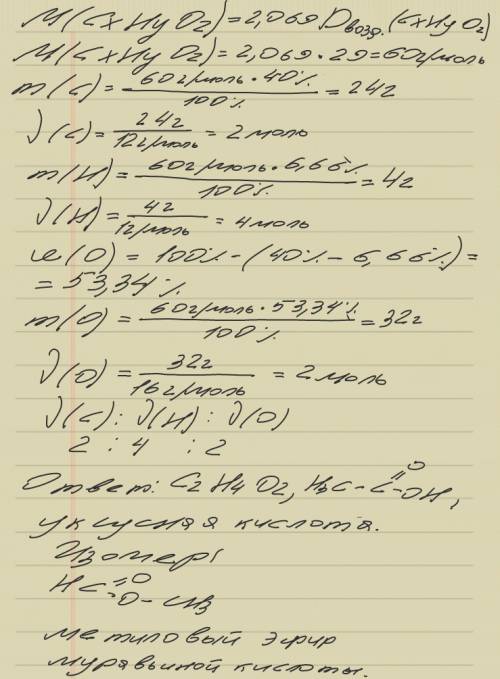 M(CxHyO2)=2,069 Dвозд.(CxHyO2)
M(CxHyO2)=2,069·29=60г/моль
m(C)=60г/моль·40%/100%=24г
ν(C)=24г/12г/моль=2моль
m(H)=60г/моль·6,66%/100%=4г
ν(H)=4г/12г/моль=4моль
ω(O)=100%-(40%-6,66%)=
=53,34%
m(O)=60г/моль·53,34%/100%=32г
ν(O)=32г/16г/моль=2моль
ν(C):ν(H):ν(O)
2 : 4 : 2
Ответ: C2H4O2, H3C-C=O-OH,
уксусная кислота.
Изомер:
HC=O-O-CH3
метиловый эфир
муравьиной кислоты.